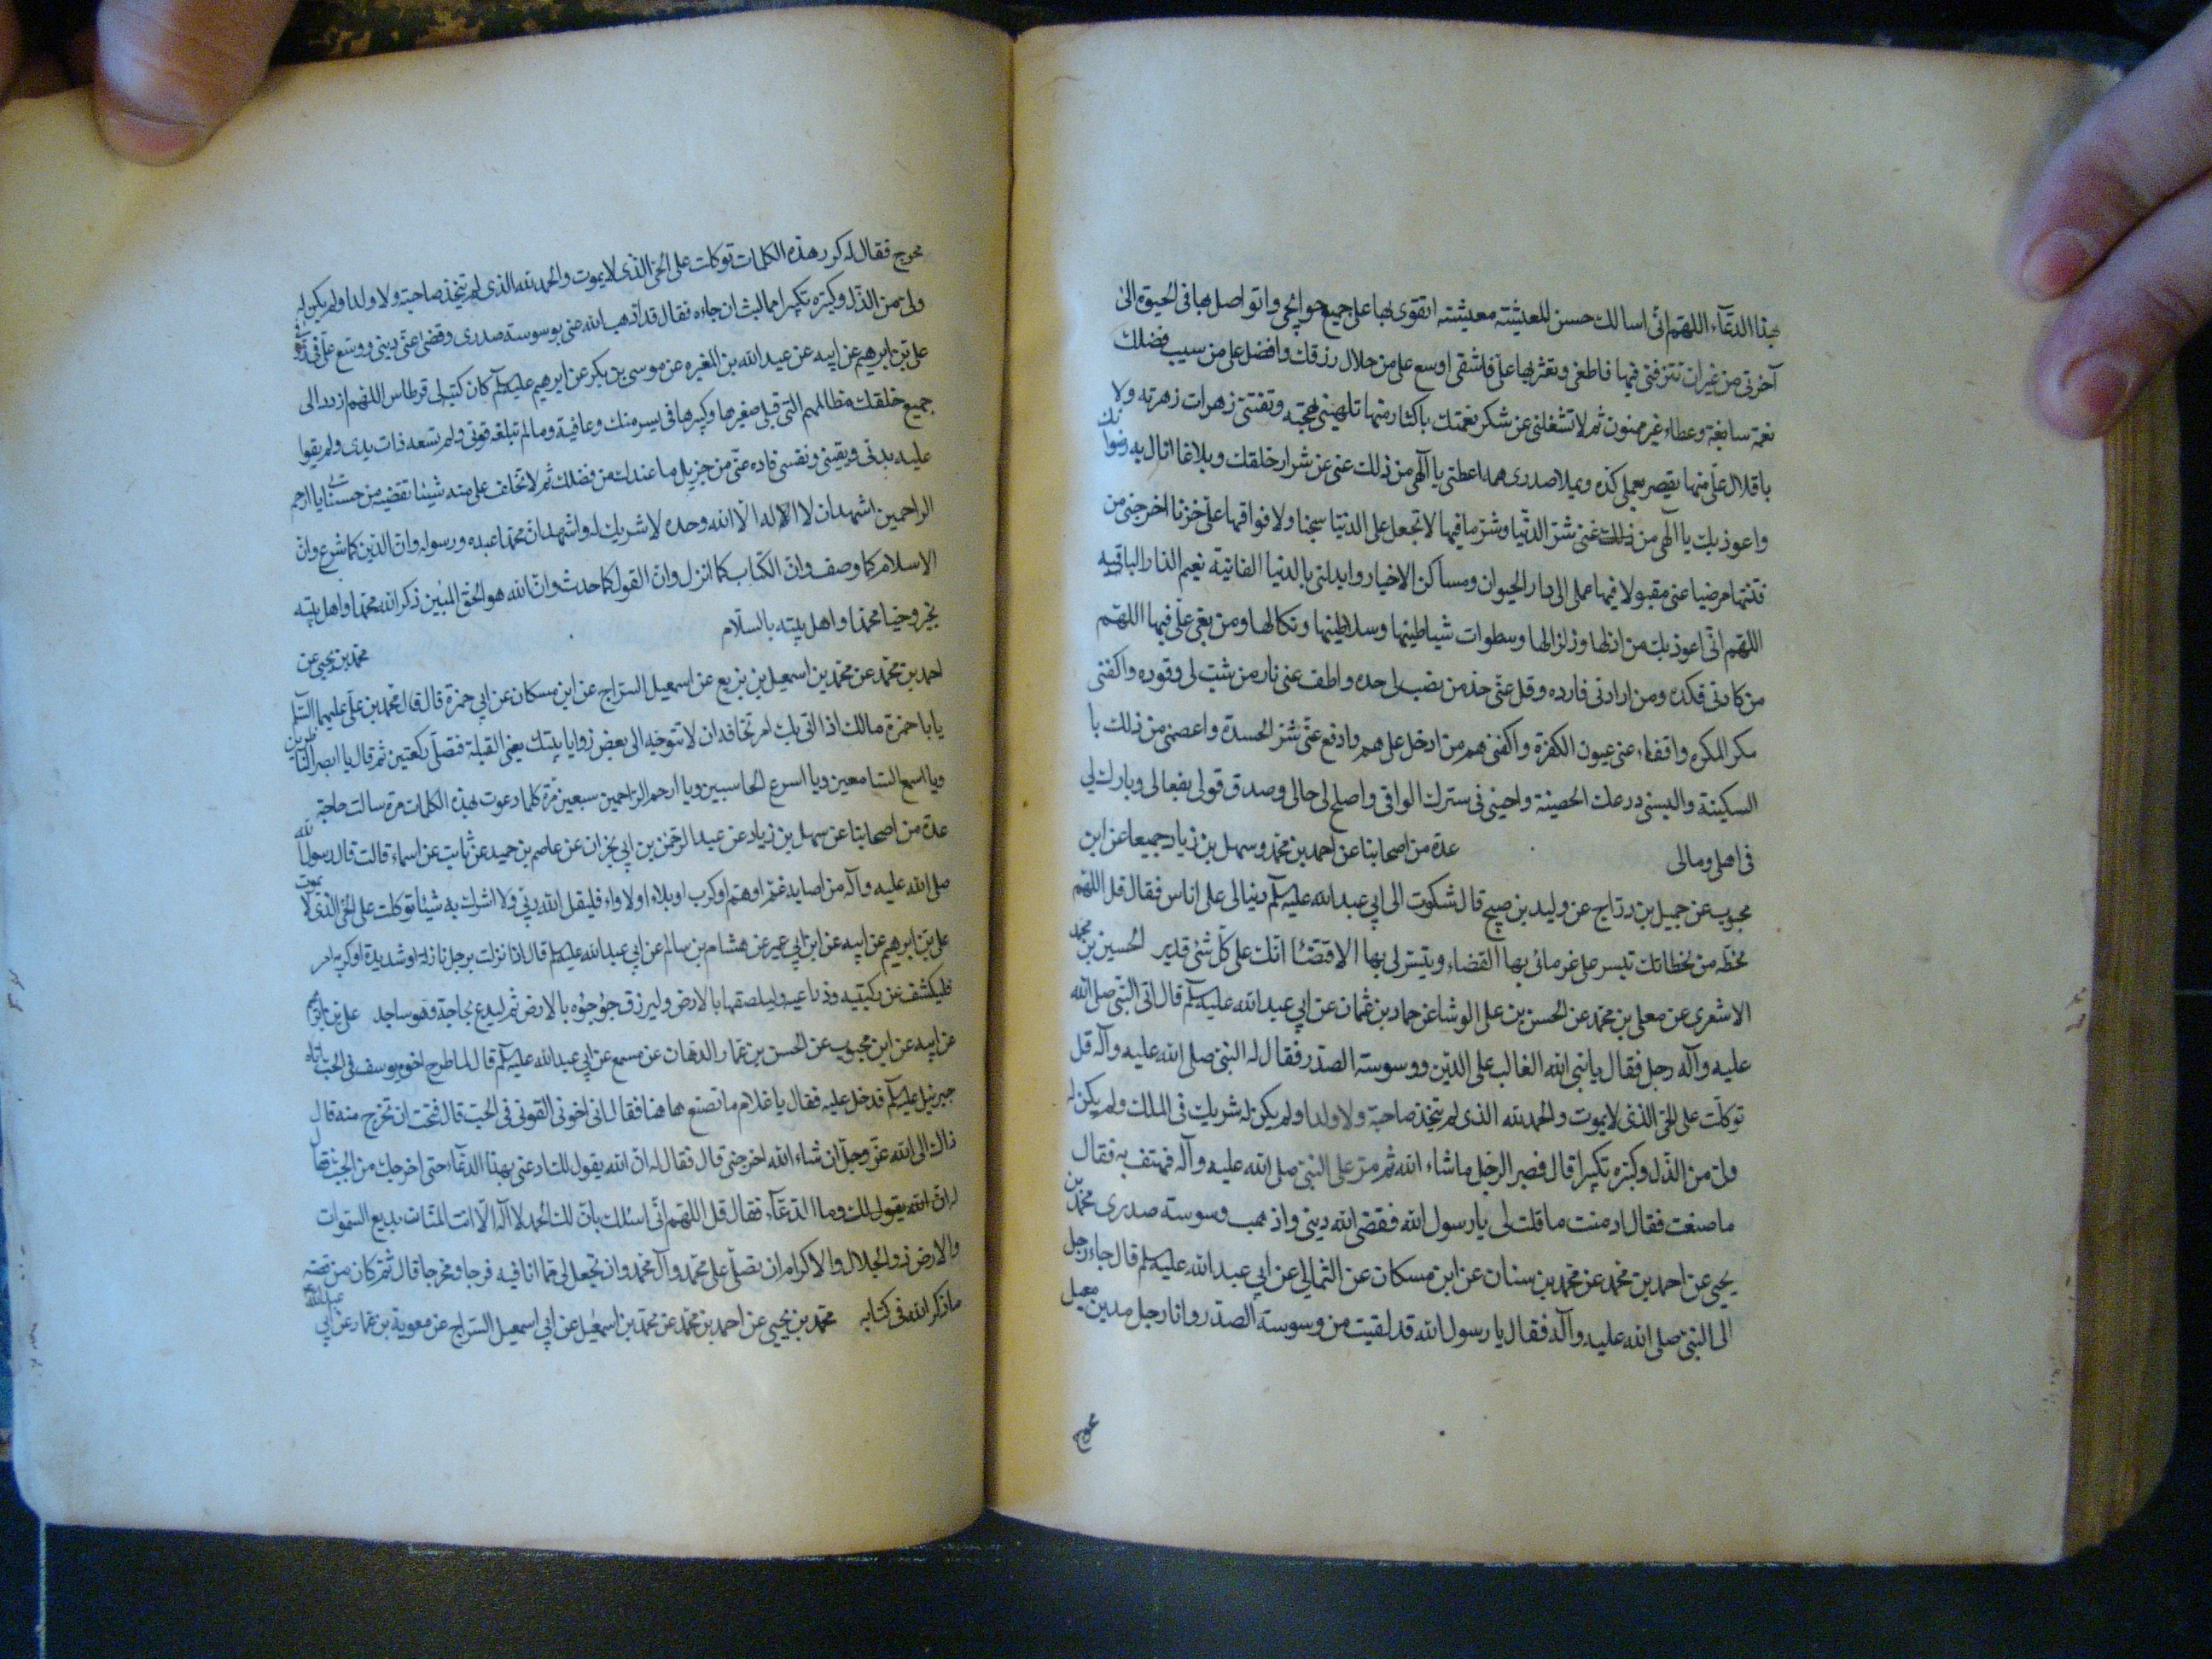 بهذا الدّعاء اللهم انّى اسالك حسن المعيشة معيشته اتقوى بها على جميع حوايجى واتواصل بها فى الحيوة الى
آخرتى من غير ان تترفنى فيها فاطغى وتقتر بها علىّ فاشقى اوسع على من حلال رزقك وافضل على من سيب فضلك
نعمة سابغة وعطاء غير ممنون ثم لا تشغلنى عن شكر نعمتك باكثار منها تلهينى بهجته وتفتنى زهرات زهرته ولا
باقلال علىّ منها يقصر بعملى كدّه ويملا صدرى همه اعطنى يا آلهى من ذلك غنى عن شرار خلقك وبلاغا انال به رضوانك
واعوذ بك يا آلهى من شر الدنيا وشر مافيها لا تجعل على الدنيا سجنا ولا فراقها على حزنا اخرجنى من
فتنتها مرضيا عنى مقبولا فيها عملى الى دار الحيوان ومساكن الاخيار وابدلنى بالدنيا الفانية نعيم الدار الباقيه
اللهم انّى اعوذ بك من ازلها وزلزالها وسطوات شياطينها وسلاطينها ونكالها ومن بغى علىّ فيها اللهم
من كادنى فكده ومن ارادنى فارده وفل عنّى حد من نصب لى حده واطف عنى نار من شب لى وقوده واكفنى
مكر المكره وافقاء عنى عيون الكفرة واكفنى هم من ادخل على همه وادفع عنّى شرّ الحسدة واعصمنى من ذلك با
السكينة والبسنى درعك الحصينة واحينى فى سترك الواقى واصلح لى حالى وصدق قولى بفعالى وبارك لى
فى اهلى ومالى عدة من اصحابنا عن احمد بن محمد وسهل بن زياد جميعا عن ابن
محبوب عن جميل بن درّاج عن وليد بن صبيح قال شكوت الى ابى عبد الله عليه السلم دينا لى على اناس فقال قل اللهم
لحظة من لحظاتك تيسر على غرمائى بها القضاء وتيسر لى بها الاقتضا انّك على كلّ شئ قدير الحسين بن محمد
الاشعرى عن معلى بن محمد عن الحسن بن على الوشا عن حماد بن عثمان عن ابى عبد الله عليه السلم قال اتى النبى صلى الله
عليه وآله رجل فقال يا نبى الله الغالب على الدّين ووسوسة الصدر فقال له النبىّ صلى الله عليه وآله قل
توكلّت على الحىّ الذى لا يموت والحمد لله الذى لم يتخذ صاحبة ولا ولدا ولم يكن له شريك فى الملك ولم يكن له
ولىّ من الذّل وكبّره تكبيرا قال فصبر الرجل ما شاء الله ثم مرّ على النبىّ صلى الله عليه وآله فهتف به فقال
ما صنعت فقال ادمنت ما قلت لى يا رسول الله فقضى الله دينى واذهب وسوسة صدرى محمد بن
يحيى عن احمد بن محمد عن محمد بن سنان عن ابن مسكان عن الثمالى عن ابى عبد الله عليه السلم قال جاء رجل
الى النبىّ صلى الله عليه وآله فقال يا رسول الله قد لقيت من وسوسة الصدر وانا رجل مدين معيل
محوج
محوج فقال له كرر هذه الكلمات توكلت على الحىّ الذى لا يموت والحمد لله الذى لم يتخذ صاحبة ولا ولدا ولم يكن له
ولىّ من الذّل وكبّره تكبيرا فما لبث ان جاءه فقال قد اذهب الله عنى بوسوسة صدرى وقضى عنّى دينى ووسع علىّ رزقى
على بن ابرهيم عن ابيه عن عبد الله بن المغيره عن موسى بن بكر عن ابرهيم عليه السلم كان كتبه لى قرطاس اللهم اردد الى
جميع خلقك مظالمهم التى قبلى صغيرها وكبيرها فى يسر منك وعافية وما لم تبلغه قوتى ولم تسعه ذات يدى ولم يقوا
عليه بدنى ويقينى ونفسى فاده عنّى من جزيل ما عندك من فضلك ثم لا تخلف علىّ منه شيئا تقضيه من حسناتى يا ارحم
الراحمين اشهد ان لا اله الّا الله وحده لا شريك له واشهد انّ محمدا عبده ورسوله وان الدّين كما شرع وانّ
الاسلام كما وصف وانّ الكتاب كما انزل وان القول كما حدث وانّ الله هو الحقّ المبين ذكر الله محمدا واهل بيته
بخير وحيّا محمدا واهل بيته بالسلام محمد بن يحيى عن
احمد بن محمد عن محمد بن اسمعيل بن بزيع عن اسمعيل السراج عن ابن مسكان عن ابى حمزة قال قال محمد بن على عليهما السلم
يا با حمزة مالك اذا اتى بك امر تخافه ان لا تتوجه الى بعض زوايا بيتك يعنى القبلة فتصلّى ركعتين ثم قال يا ابصر الناظرين
ويا اسمع السامعين ويا اسرع الحاسبين ويا ارحم الراحمين سبعين مرّة كلما دعوت بهذه الكلمات مرة سالت حاجة
عدة من اصحابنا عن سهل بن زياد عن عبد الرحمن بن ابى نجران عن عاصم بن حميد عن ثابت عن اسماء قالت قال رسول الله
صلى الله عليه وآله من اصابه غمّ او همّ او كرب او بلاء او لاواء فليقل الله ربّى ولا اشرك به شيئا توكلت على الحىّ الذى لا يموت
على بن ابرهيم عن ابيه عن ابن ابى عمير عن هشام بن سالم عن ابى عبد الله عليه السلم قال اذا نزلت برجل نازلة او شديدة او كربه امر
فليكشف عن ركبتيه وذراعيه وليلصقهما بالارض وليلزق جؤجؤه بالارض ثم ليدع بحاجته وهو ساجد على بن ابرهيم
عن ابيه عن ابن محبوب عن الحسن بن عمار الدهان عن مسمع عن ابى عبد الله عليه السلم قال لما طرح اخوه يوسف فى الجب اتاه
جبرئيل عليه السلم فدخل عليه فقال يا غلام ما تصنع هاهنا فقال انى اخوتى القونى فى الجبّ قال فتحب ان تخرج منه قال
ذاك الى الله عزّ وجل ان شاء الله اخرجنى قال فقال له ان الله يقول لك ادعنى بهذا الدّعاء حتى اخرجك من الجبّ فقال
له ان الله يقول لك وما الدعآء فقال قل اللهم انّى اسئلك بانّ لك الحمد لا آله الّا انت المنّان بديع السّموات
والارض ذو الجلال والاكرام ان تصلّى على محمد وآل محمد وان تجعل لى ممّا انا فيه فرجا ومخرجا قال ثم كان من قصته
ما ذكر الله فى كتابه محمد بن يحيى عن احمد بن محمد عن محمد بن اسمعيل عن ابى اسمعيل السراج عن معوية بن عمار عن ابى عبد الله